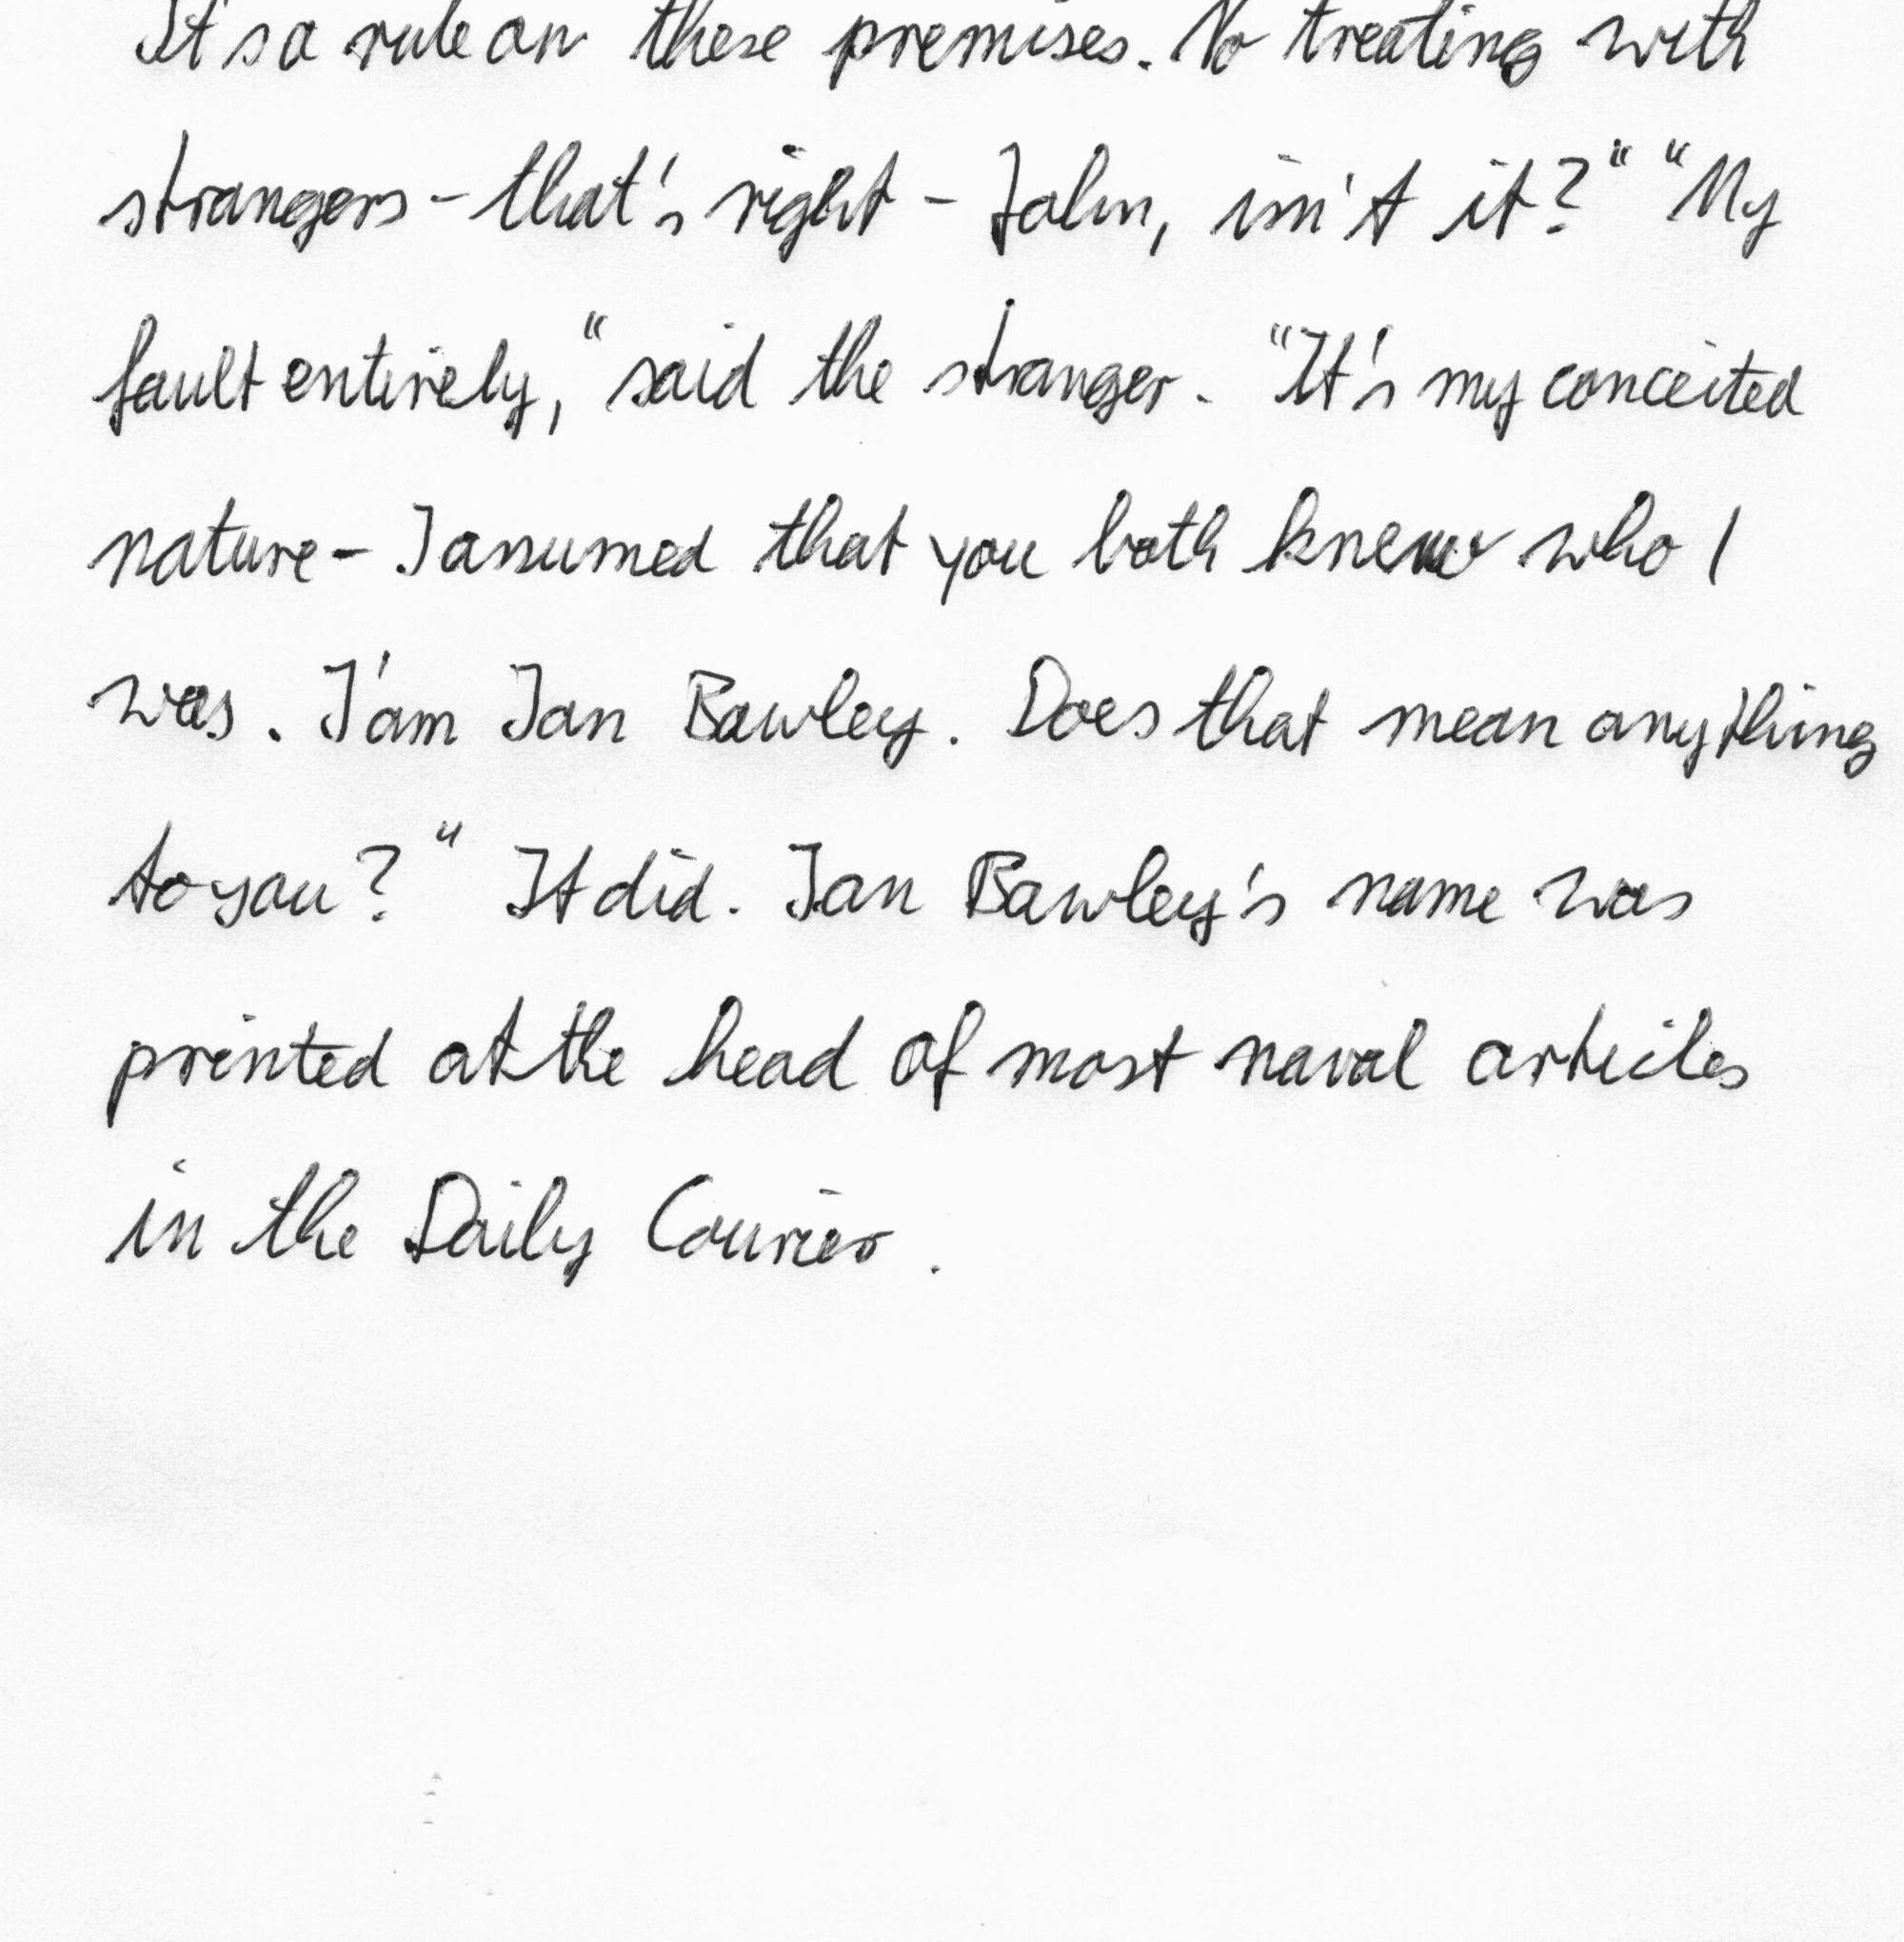 It's a rule on these premises. No treating with
strangers - that's right - John, isn't it?" "My
fault entirely," said the stranger. "It's my conceited
nature - I assumed that you both knew who I
was. I'am Ian Bawley. Does that mean anything
to you?" It did. Ian Bawley's name was
printed at the head of most naval articles
in the Daily Courier.